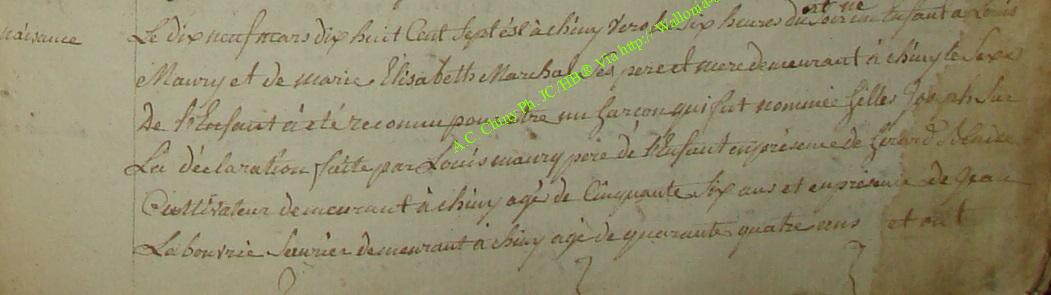 naisance
est né
Le dix neuf mars dix huit Cent Sept est à chiny vers les Six heures du Soir un Enfant à Louis
Maury et de marie Elisabeth Marchal Ses pere et mere demeurant à chiny le Sexe
De l'Enfant à été reconnu pour être un garçon qui fut nommé gilles Joseph Sur
La déclaration faite par Louis maury pere de l'Enfant en présence de Gerard
Cultivateur demeurant à chiny agé de Cinquante Six ans et en présence de jean
La bouvrie demeurant à chiny agé de quarante quatre ans et ont
A.C. Chiny Ph. JC /HH® Via http://Wallonia-